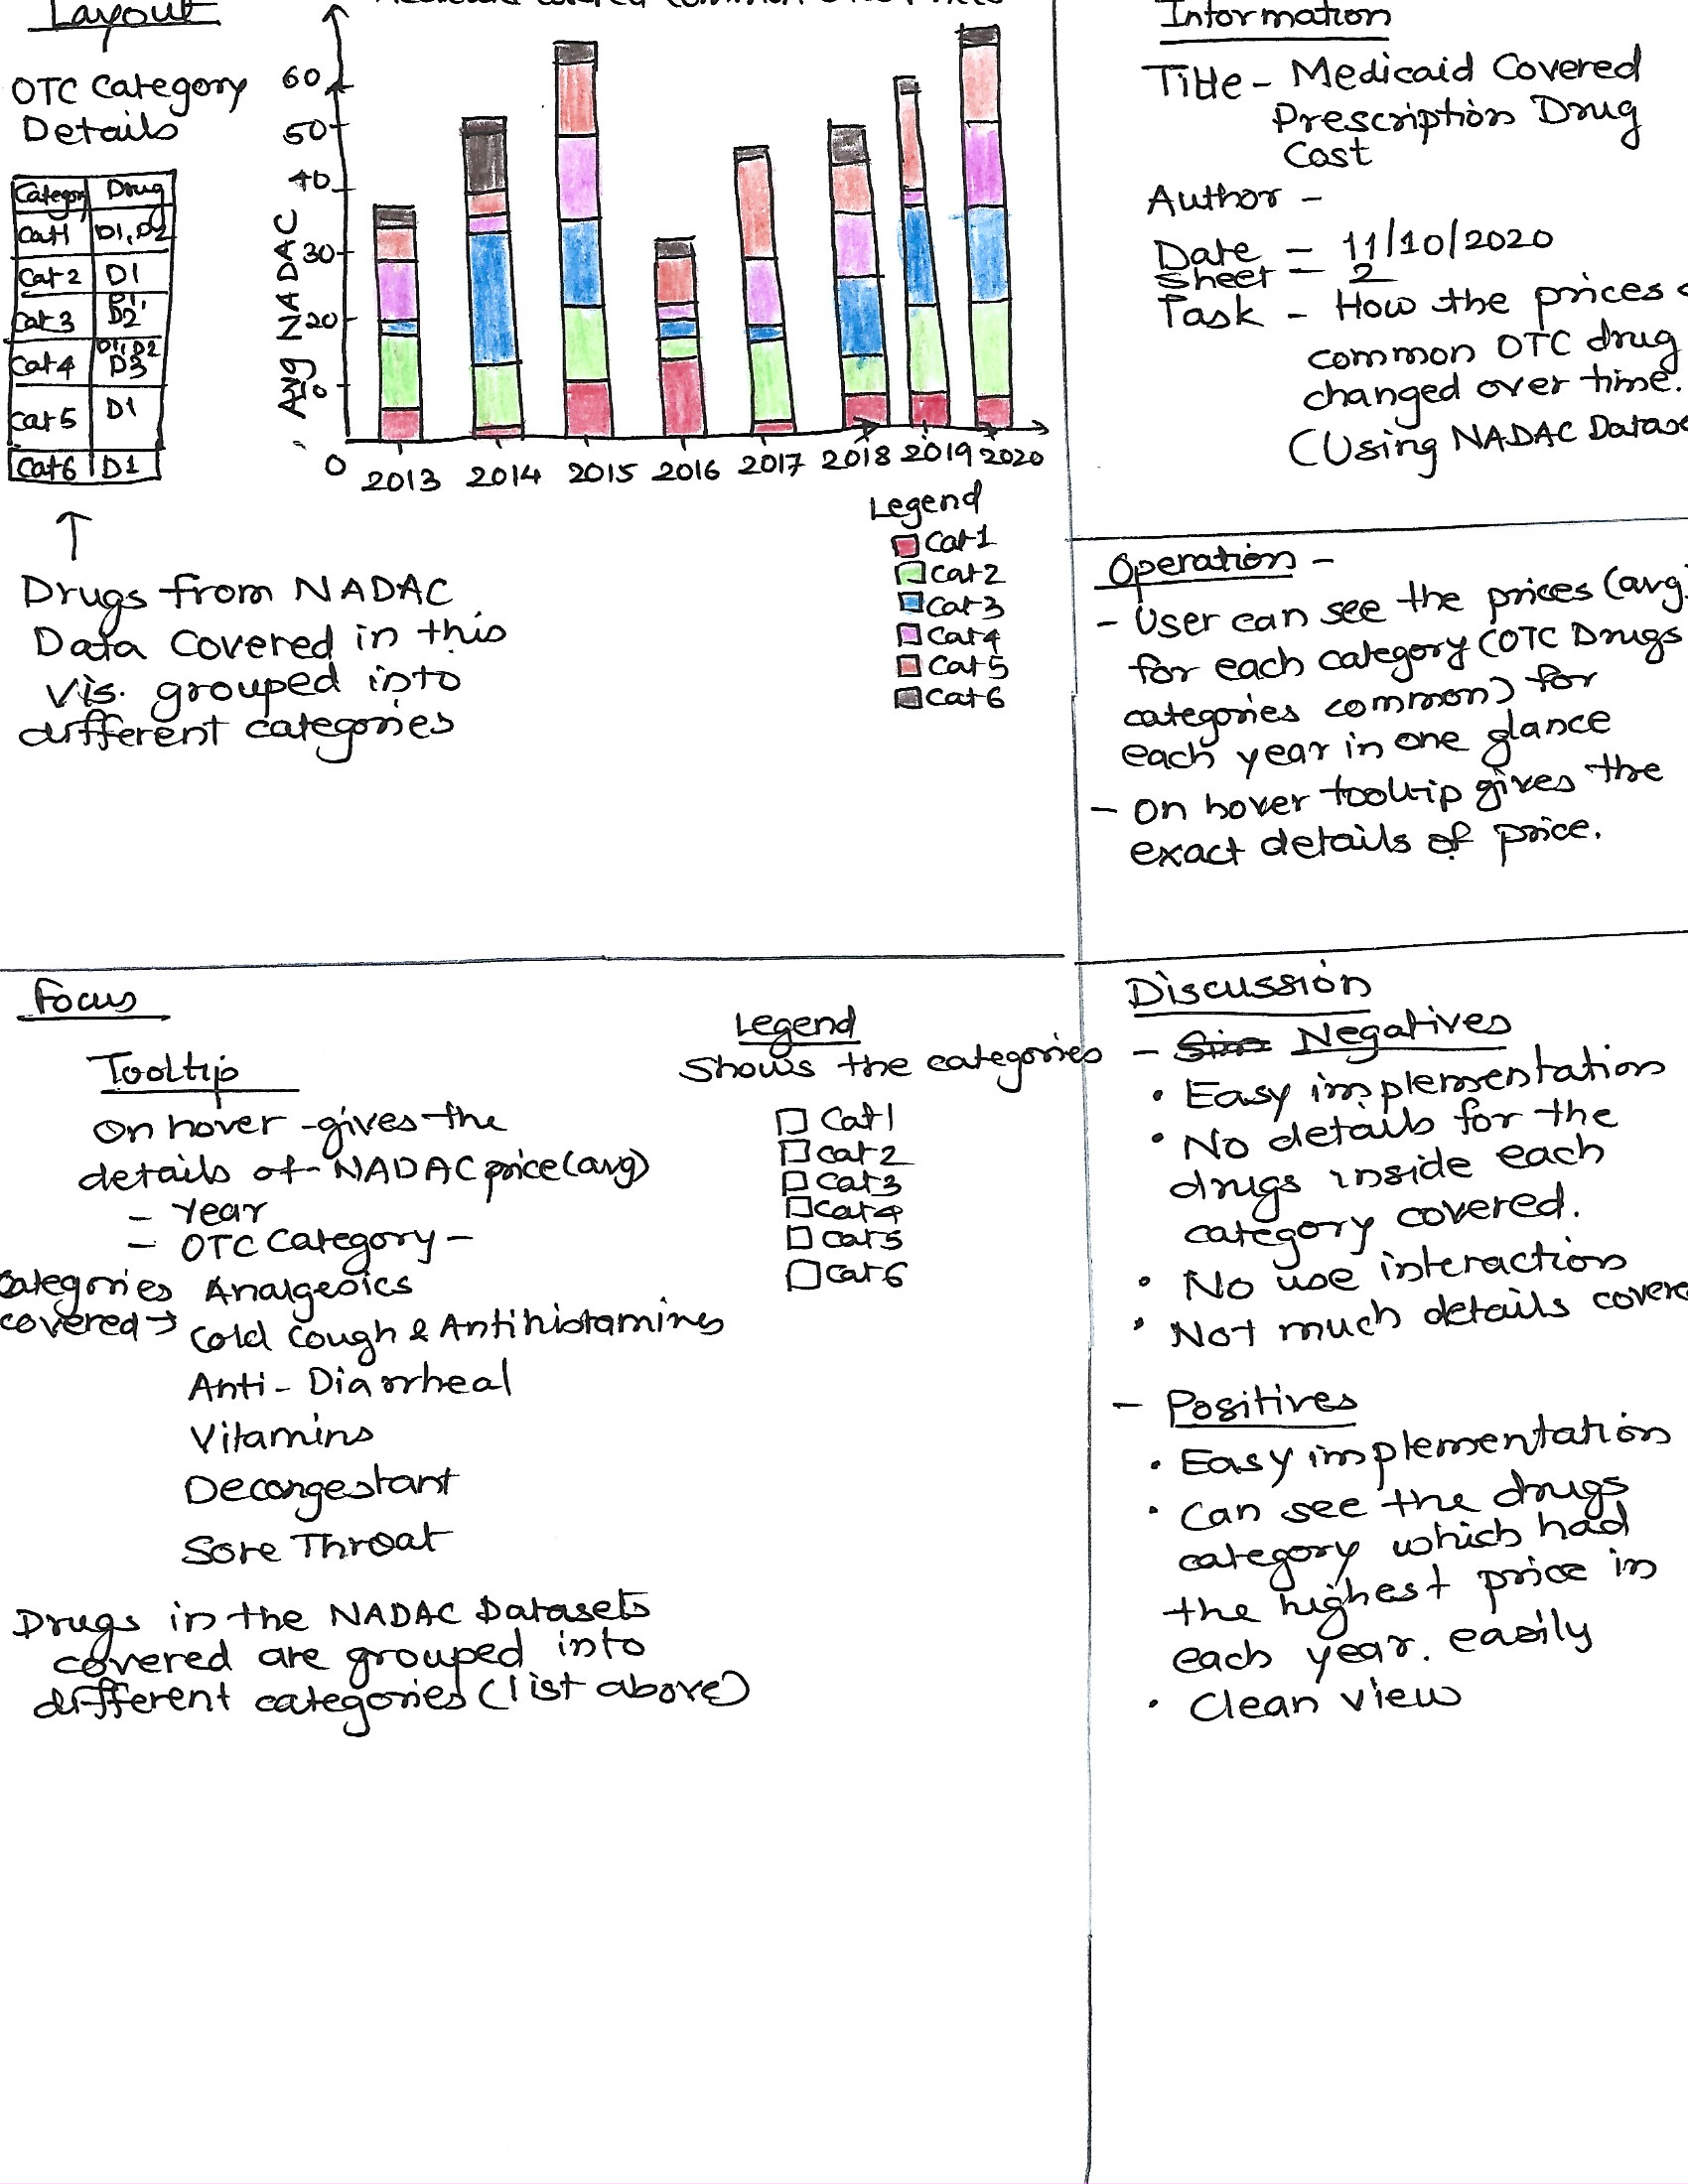 Layout
OTC Category
Details
Category Drug
Cat1 D1, D2
Cat 2 D1
Cat 3 D1, D2
Cat 4 D1, D2 D3
Cat 5 D1
Cat6 D1
Drugs from NADAC
Data Covered in this
vis. grouped into
different categories
Medicaid covered common OTC Prices
Avg NADAC
60
50
40
30
20
10
0
2013 2014 2015 2016 2017 2018 2019 2020
Legend
Cat1
Cat2
Cat3
Cat4
Cat5
Cat6
Information
Title - Medicaid Covered
Prescription Drug
Cost
Author -
Date - 11/10/2020
Sheet - 2
Task - How the prices
common OTC drug
changed over time.
(Using NADAC
Operation -
- User can see the prices (avg)
for each category (OTC Drugs
categories common) for
each year in one glance
- On hover tooltip gives the
exact details of price.
Focus
Tooltip
On hover - gives the
details of NADAC price (avg)
- Year
- OTC Category -
Categories Analgesics
covered → Cold Cough & Antihistamines
Anti-Diarrheal
Vitamins
Decongestant
Sore Throat
Drugs in the NADAC Datasets
covered are grouped into
different categories (list above)
Legend
Shows the categories
Cat1
Cat2
Cat3
Cat4
Cat5
Cat6
Discussion
- Negatives
• Easy implementation
• No details for the
drugs inside each
category covered.
• No use interaction
• Not much details
- Positives
• Easy implementation
• Can see the drugs
category which had
the highest price in
each year. easily
• Clean view